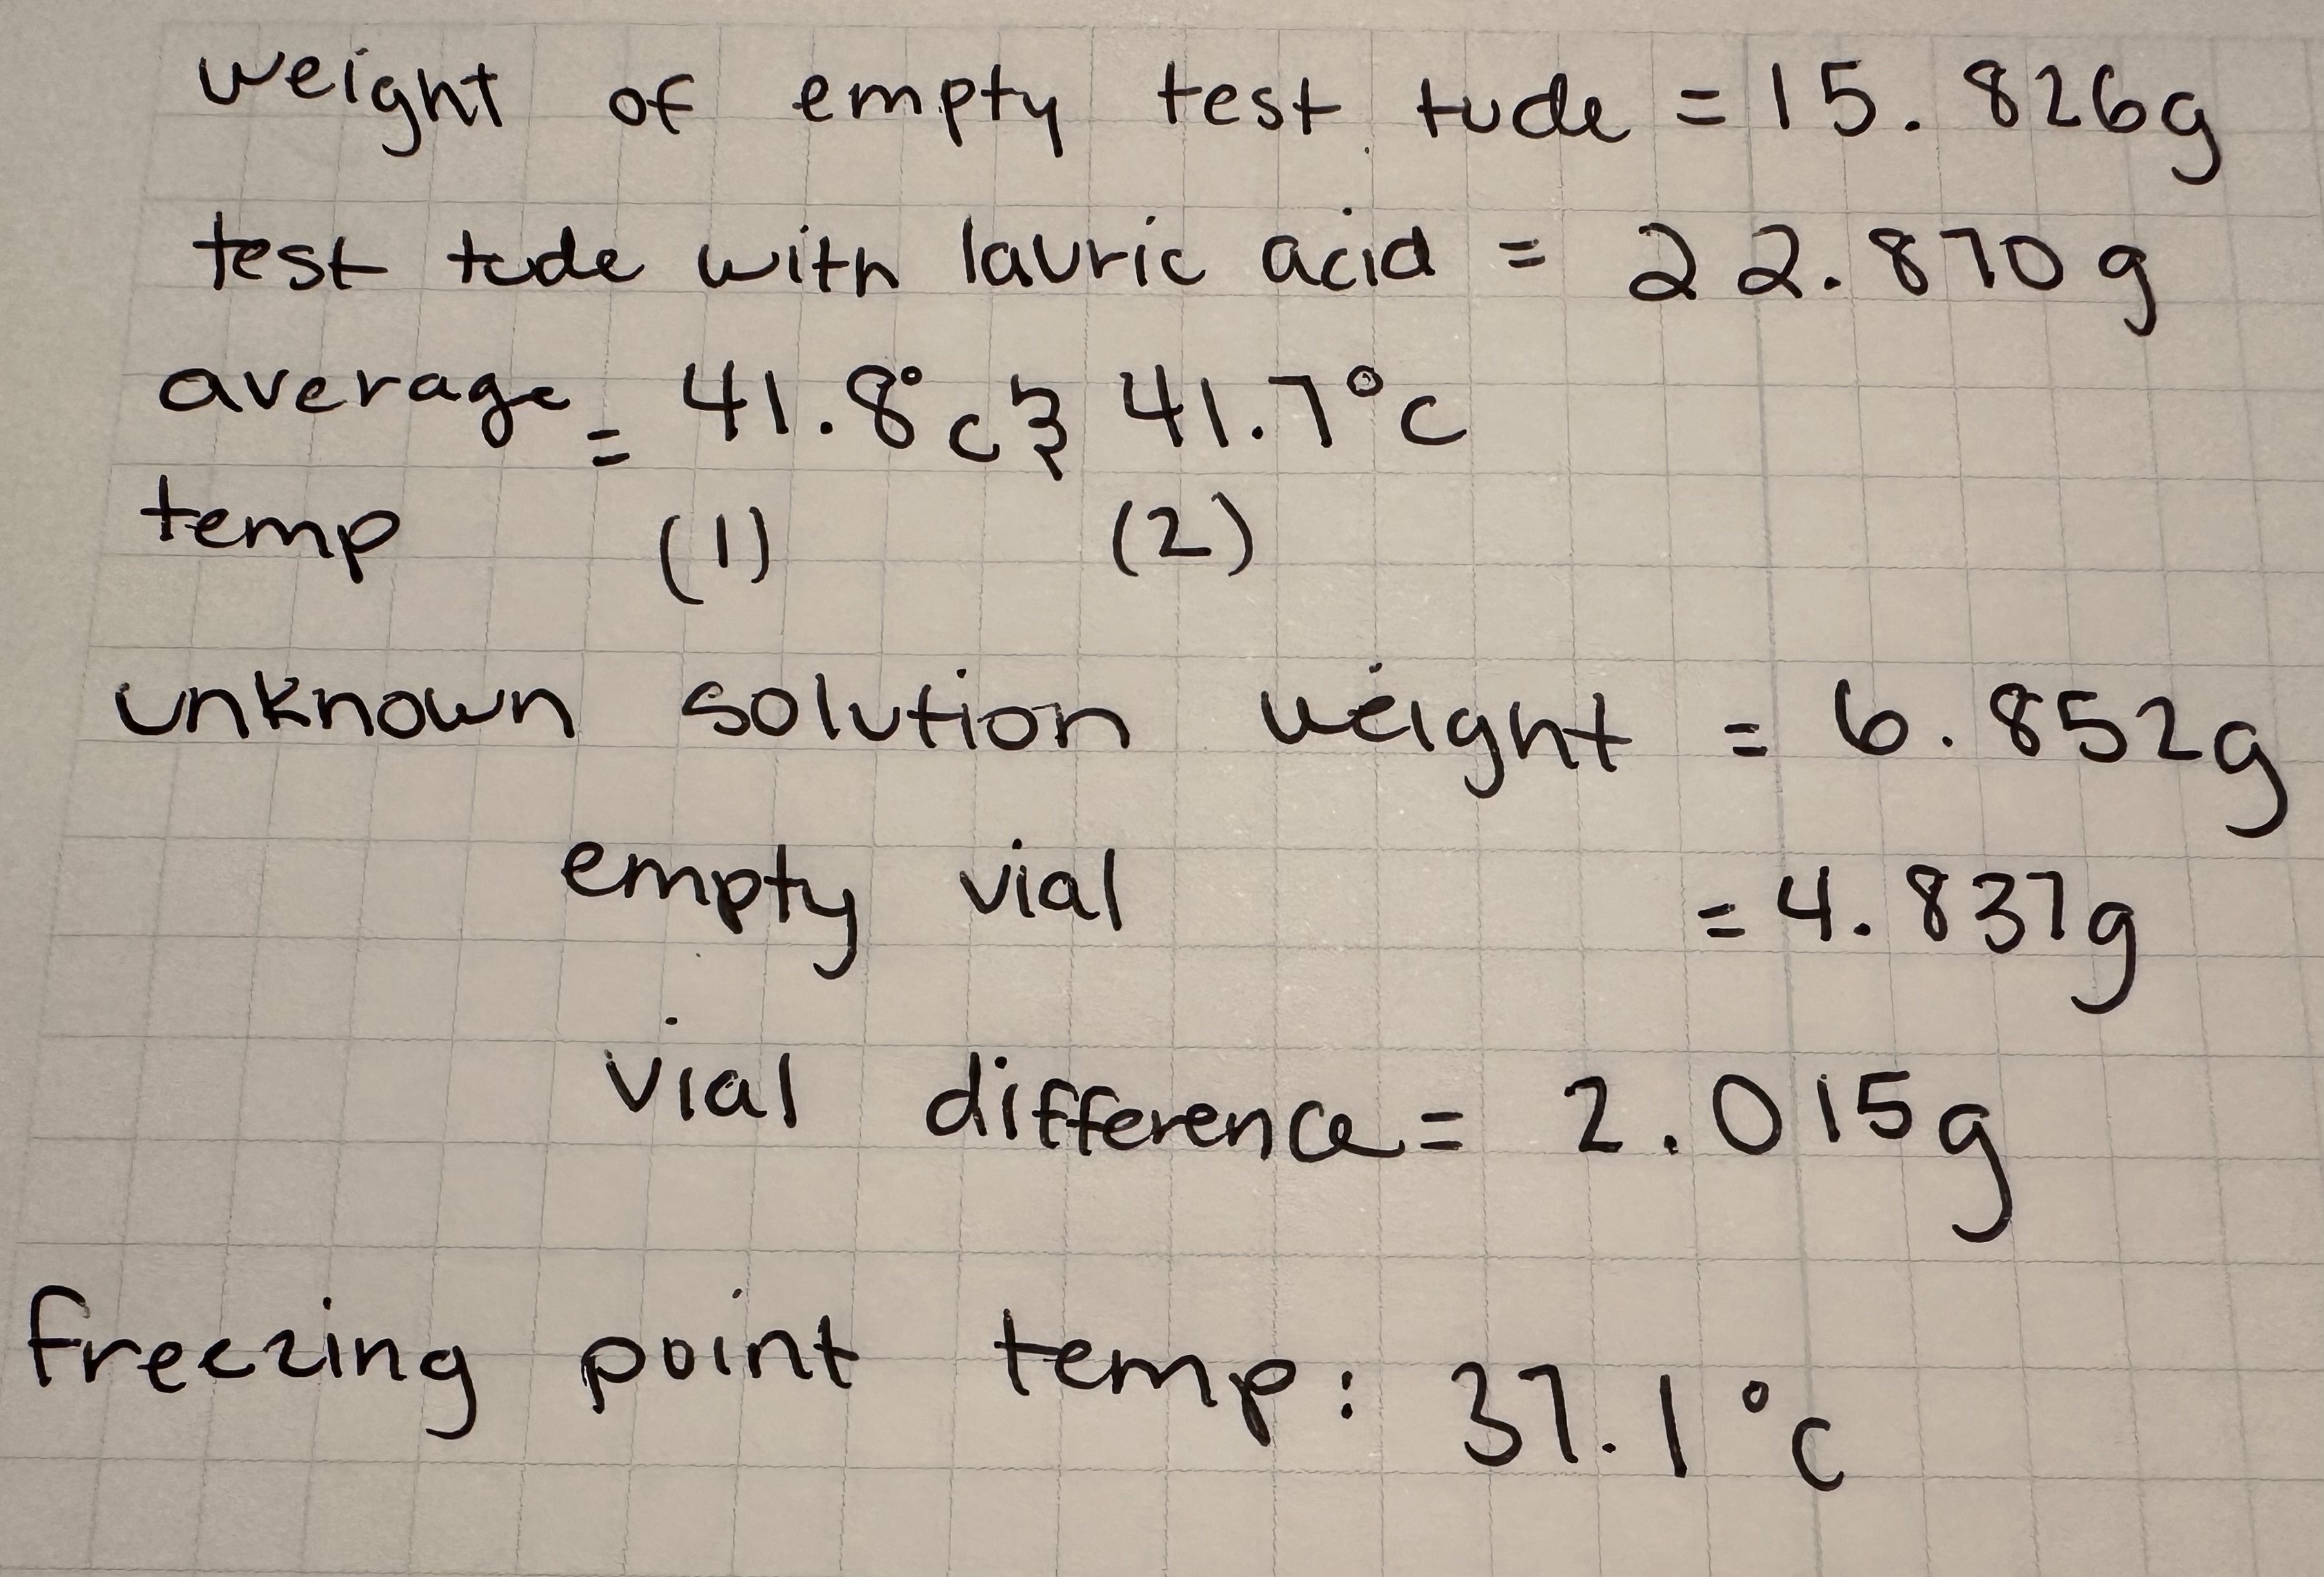 weight of empty test tude = 15.826g
test tude with lauric acid = 22.870g
average = 41.8°c & 41.7°c
temp (1) (2)
unknown solution weight = 6.852g
empty vial = 4.837g
vial difference = 2.015g
freezing point temp: 37.1°c